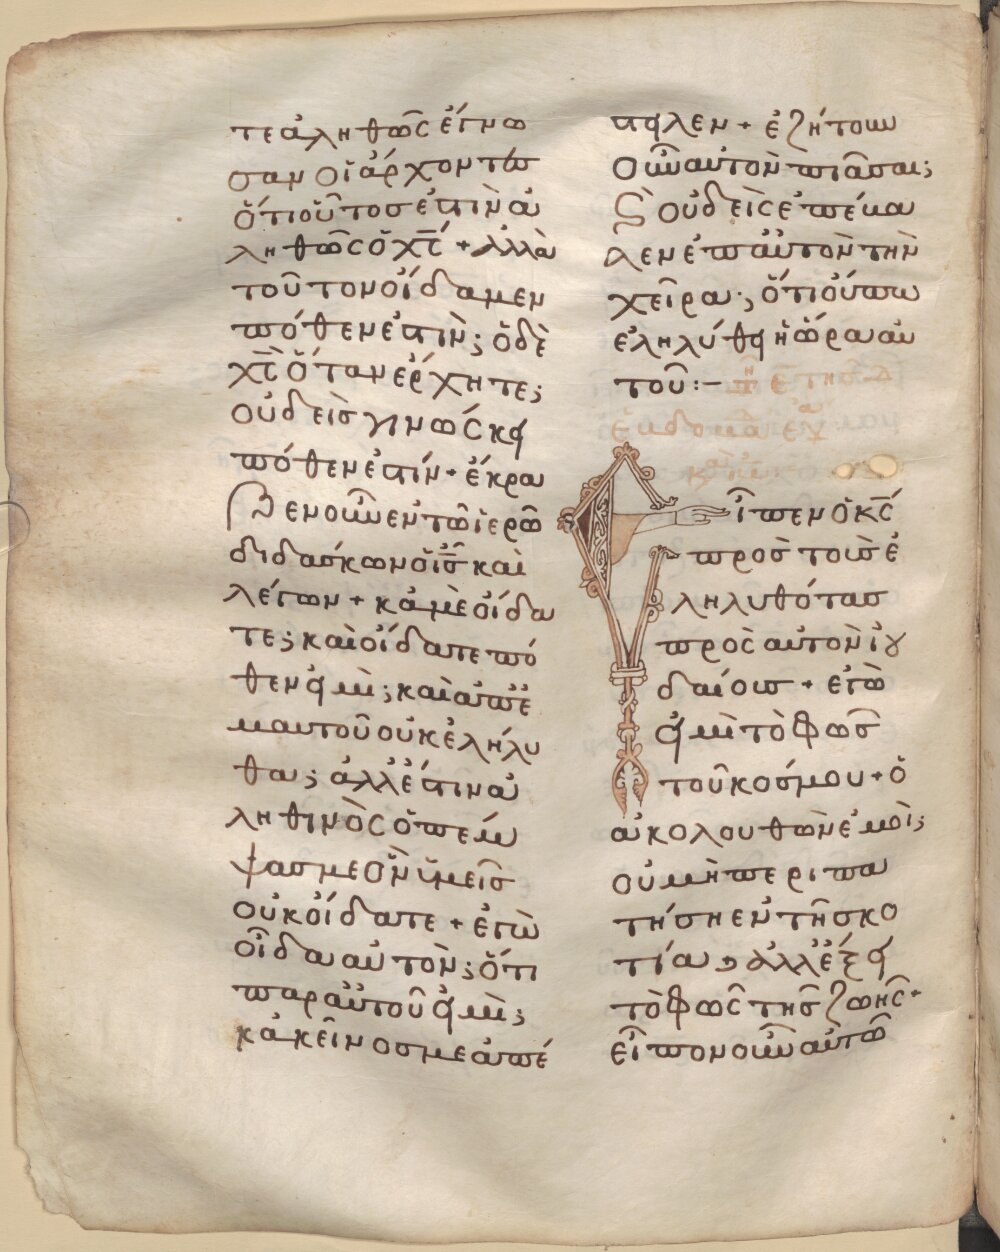 τε ἀληθῶς ἔγνω
σαν οἱ ἄρχοντες
ὅτι οὗτος ἐστὶν ἀ
ληθῶς ὁ χς̅ + ἀλλὰ
τοῦτον οἴδαμεν
πόθεν ἐστὶν; ὁ δὲ
χς̅ ὅταν ἔρχητε;
οὐδεὶς γινώσκει
πόθεν ἐστίν + ἔκρα
ξεν οὖν ἐν τῶ ἱερῶ
διδάσκων ὁ ις̅ καὶ
λέγων + κἀμὲ οἴδα
τε; καὶ οἴδατε πό
θεν εἰμὶ; καὶ ἀπ ἐ
μαυτοῦ οὐκ ἐλήλυ
θα; ἀλλ ἔστιν ἀ
ληθινὸς ὁ πέμ
ψας με ὃν ὑμεῖς
οὐκ οἴδατε + ἐγὼ
οἶδα αὐτὸν; ὅτι
παρ αὐτοῦ εἰμὶ;
κἀκεῖνος με ἀπέ
στειλεν + ἐζήτουν
οὖν αὐτὸν πιᾶσαι;
ϗ οὐδεὶς ἐπέβα
λεν ἐπ αὐτὸν τὴν
χεῖρα; ὅτι οὔπω
ἐληλύθει ἡ ὥρα αὐ
τοῦ :–
Εἶπεν ὁ κς̅
πρὸς τοὺς ἐ
ληλυθότας
πρὸς αὐτὸν ἰου
δαίους + ἐγὼ
εἰμὶ τὸ φῶς
τοῦ κόσμου + ὁ
ἀκολουθῶν ἐμοὶ;
οὐ μὴ περιπα
τήση ἐν τῆ σκο
τία, ἀλλ ἕξει
τὸ φῶς τῆς ζωῆς +
εἶπον οὖν αὐτῶ